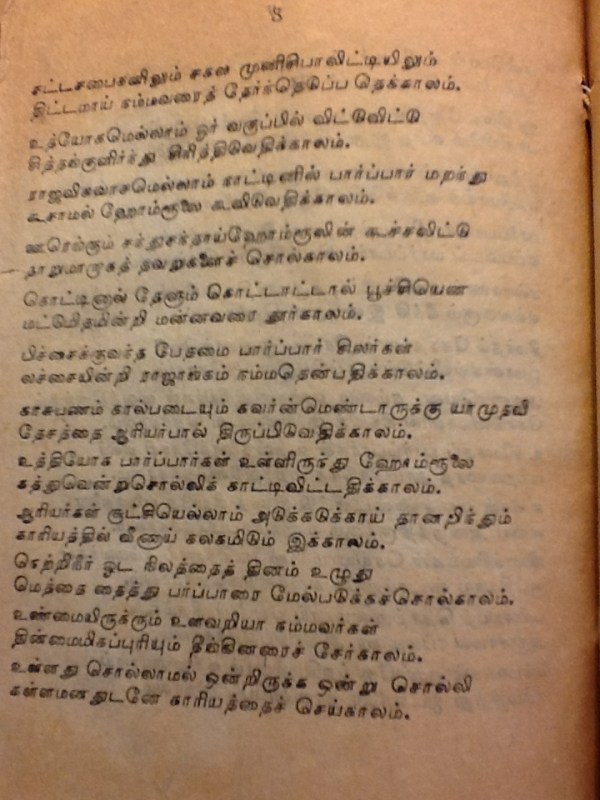 8
சட்டசபைகளிலும் சகல முனிசிபாலிட்டியிலும்
திட்டமாய் நம்மவரைத் தேர்ந்தெடுப்ப தெக்காலம்.
உத்யோகமெல்லாம் ஓர் வகுப்பில் விட்டுவிட்டு
சித்தங்குளிர்ந்து சிரித்திடுவெதிக்காலம்.
ராஜவிசுவாசமெல்லாம் காட்டினில் பார்ப்பார் மறந்து
கூசாமல் ஹோம்ரூலை கூவிடுவதிக்காலம்.
ஊரெங்கும் சந்துசந்தாய்ஹோம்ரூலின் கூச்சலிட்டு
தாறுமாறாகத் தவறுகளைச் சொல்காலம்.
கொட்டினால் தேளும் கொட்டாட்டால் பூச்சியென
மட்டமிதமின்றி மன்னவரை தூர்காலம்.
பிச்சைக்குவந்த பேதமை பார்ப்பார் சிலர்கள்
லச்சையின்றி ராஜாங்கம் நம்மதென்பதிக்காலம்.
காசுபணம் கால்படையும் கவர்ன்மெண்டாருக்கு யாமுதவி
தேசத்தை ஆரியர்பால் திருப்பிடுவெதிக்காலம்.
உத்தியோக பார்ப்பார்கள் உள்ளிருந்து ஹோம்ரூலை
கத்துவென்றுசொல்லிக் காட்டிவிட்டதிக்காலம்.
ஆரியர்கள் சூட்சியெல்லாம் அடுக்கடுக்காய் தானறிந்தும்
காரியத்தில் வீணாய் கலகமிடும் இக்காலம்.
நெற்றிநீர் ஓட நிலத்தைத் தினம் உழுது
மெத்தை தைத்து பார்ப்பாரை மேல்படுக்கச்சொல்காலம்.
உண்மையிருக்கும் உளவறியா நம்மவர்கள்
தின்மைமிகப்புரியும் தீங்கினரைச் சேர்காலம்.
உள்ளது சொல்லாமல் ஒன்றிருக்க ஒண்று சொல்லி
கள்ளமனதுடனே காரியத்தைச் செய்காலம்.